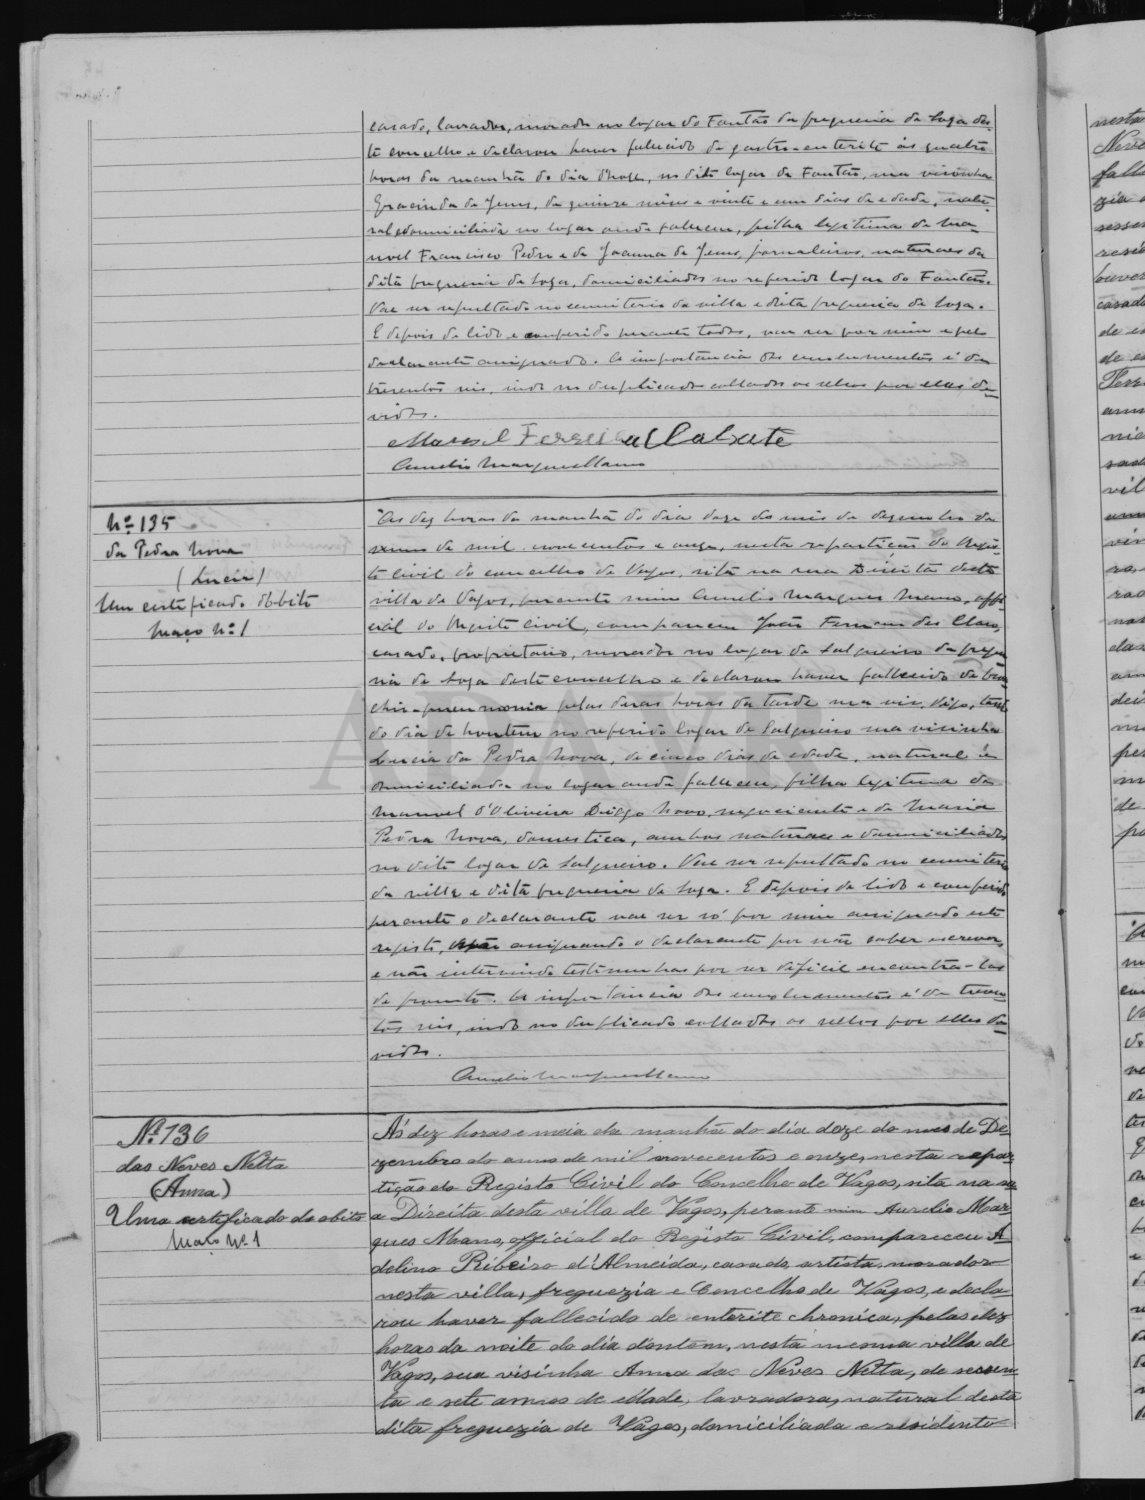 casado, lavrador, morador no logar do Fontão da freguesia de Soza des-
te concelho e declarou haver fallecido de gastro-enterite ás quatro
horas da manhã do dia d'hoje, no dito logar de Fontão, sua visinha
Gracinda de Jesus, de quinze mêses e vinte e um dias de edade, natu-
ral e domiciliada no logar onde falleceu, filha legitima de Ma-
noel Francisco Pedro e de Joanna de Jesus, jornaleiros, naturaes da
dita freguesia de Soza, domiciliados no referido logar do Fontão.
Vae ser sepultado no cemiterio da villa e dita freguesia de Soza.
E depois de lido e conferido perante todos, vae ser por mim e pelo
declarante assignado. A importancia dos emolumentos é de
tresentos reis, indo no duplicado collados os sellos por elles de-
vidos.
Manoel Ferreira Calxate
Aurelio Marques Mano
Nº 135
da Pedra Nova
(Lucia)
Um certificado d'obito
Maço nº 1
Ás dez horas da manhã do dia doze do mês de dezembro do
anno de mil novecentos e onze, nesta repartição do Regis-
to Civil do concelho de Vagos, sita na rua Direita desta
villa de Vagos, perante mim Aurelio Marques Mano, offi-
cial do Registo Civil, compareceu João Fernandes Claro,
casado, proprietario, morador no logar de Salgueiro da fregue-
sia de Soza deste concelho e declarou haver fallecido de bron-
cho-pneumonia pelas duas horas da tarde sua vis, digo, tarde
do dia de hontem no referido logar de Salgueiro sua visinha
Lucia da Pedra Nova, de cinco dias de edade, natural e
domiciliada no logar onde falleceu, filha legitima de
Manoel d'Oliveira Diogo Novo, negociante e de Maria
Pedra Nova, domestica, ambos naturaes e domiciliados
no dito logar de Salgueiro. Vae ser sepultado no cemiterio
da villa e dita freguesia de Soza. E depois de lido e conferido
perante o declarante vae ser só por mim assignado este
registo, não assignando o declarante por não saber escrever,
e não intervindo testimunhas por ser dificil encontra-las
de prompto. A importancia dos emolumentos é de trezen-
tos reis, indo no duplicado collados os sellos por elles de-
vidos.
Aurelio Marques Mano
Nº 136
das Neves Netta
(Anna)
Um certificado do obito
Maço nº 1
Ás dez horas e meia da manhã do dia doze do mes de De-
zembro do anno de mil novecentos e onze, nesta repar-
tição do Registo Civil do Concelho de Vagos, sita na ru-
a Direita desta villa de Vagos, perante mim Aurelio Mar-
ques Mano, official do Registo Civil, compareceu A-
delino Ribeiro d'Almeida, casado, artista, morador
nesta villa, freguezia e Concelho de Vagos, e decla-
rou haver fallecido de enterite chronica, pelas dez
horas da noite do dia d'ontem, nesta mesma villa de
Vagos, sua visinha Anna das Neves Netta, de sessen-
ta e sete annos de edade, lavradora, natural desta
dita freguezia de Vagos, domiciliada e residente